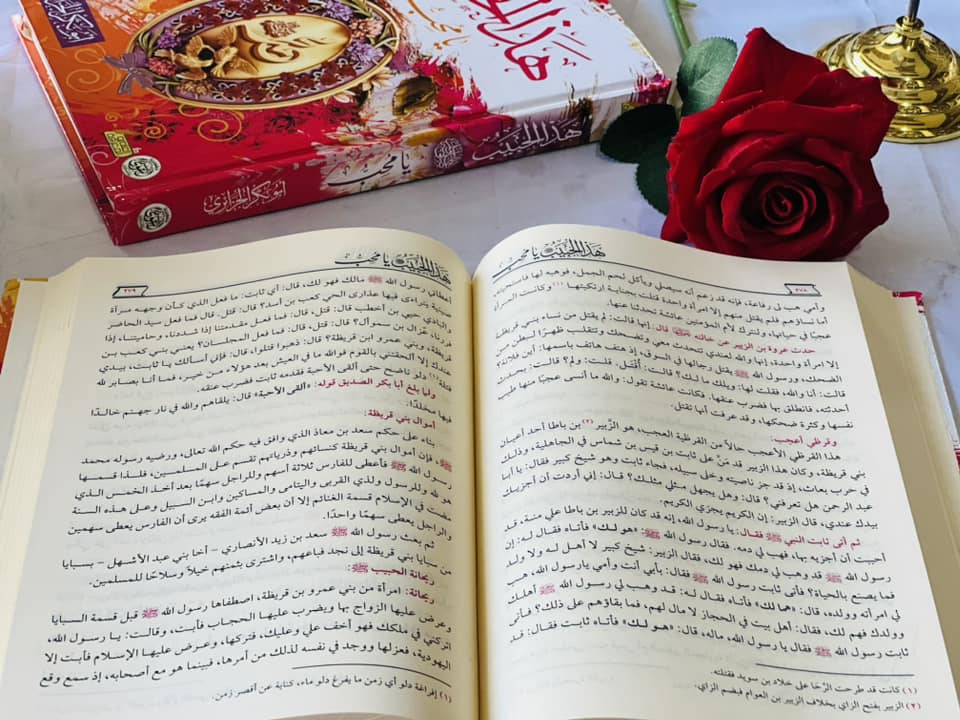 هذا الحبيب
هذا الحبيب يا محب
أبو بكر الجزائري
هذا الحبيب يا محب
٢٧٨
وأمي هب لي رفاعة، فإنه قد زعم أنه سيصلي ويأكل لحم الجمل، فوهبه لها فاستحيته.
أما نساؤهم فلم يقتل منهن إلا امرأة واحدة قتلت بجناية ارتكبتها (١) وكانت المرأة
عجبًا في حياتها، ولنترك لأم المؤمنين عائشة تحدثنا عنها.
حدث عروة بن الزبير عن خالته قال: إنها قالت: لم يقتل من نساء بني قريظة
إلا امرأة واحدة، إنها والله لعندي تتحدث معي وتضحك وتتقلب ظهرًا لبطن من
الضحك، ورسول الله ﷺ يقتل رجالها في السوق، إذ هتف هاتف باسمها: أين فلانة؟
قالت: أنا والله، فقلت لها: ويلك ما لك؟ قالت: أُقتل. قلت: ولم؟ قالت: بحدث
أحدثته، فانطلق بها فضرب عنقها. فكانت عائشة تقول: والله ما أنسى عجبًا منها طيب
نفسها وكثرة ضحكها، وقد عرفت أنها تقتل.
وقرظي أعجب:
هذا القرظي الأعجب حالاً من القرظية العجب، هو الزَّبير (٢) بن باطا أحد أعيان
بني قريظة، وكان هذا الزبير قد مَنَّ على ثابت بن قيس بن شماس في الجاهلية، وذلك
في حرب بعاث، إذ قد جز ناصيته وخلى سبيله، فجاء ثابت وهو شيخ كبير فقال: يا أبا
عبد الرحمن هل تعرفني؟ قال: وهل يجهل مثلي مثلك؟ قال: إني أردت أن أجزيك
بيدك عندي، قال الزبير: إن الكريم يجزي الكريم.
ثم أتى ثابت النبي ﷺ فقال: يا رسول الله، إنه قد كان للزبير بن باطا علي منة، قد
أحببت أن أجزيه بها، فهب لي دمه. فقال رسول الله ﷺ: «هو لك» فأتاه فقال له: إن
رسول الله ﷺ قد وهب لي دمك فهو لك، فقال الزبير: شيخ كبير لا أهل له ولا ولد
فما يصنع بالحياة؟ فأتى ثابت رسول الله ﷺ فقال: بأبي أنت وأمي يا رسول الله، هب
لي امرأته وولده، قال: «هما لك» فأتاه فقال له: قد وهب لي رسول الله ﷺ أهلك
وولدك فهم لك، فقال: أهل بيت في الحجاز لا مال لهم، فما بقاؤهم على ذلك؟ فأتى
ثابت رسول الله ﷺ فقال يا رسول الله، ماله، قال: «هو لك» فأتاه ثابت فقال: قد
(١) كانت قد طرحت الرَّحَا على خلاد بن سويد فقتلته.
(٢) الزبير بفتح الزاي بخلاف الزبير بن العوام فبضم الزاي.
هذا الحبيب يا محب
٢٧٩
أعطاني رسول الله ﷺ مالك فهو لك، قال: أي ثابت: ما فعل الذي كأن وجهه مرآة
صينية يتراءى فيها عذارى الحي كعب بن أسد؟ قال: قتل. قال فما فعل سيد الحاضر
والبادي حيي بن أخطب قال: قتل، قال: فما فعل مقدمتنا إذا شددنا، وحاميتنا، إذا
فررنا، عزال بن سموأل؟ قال: قتل، قال: فما فعل المجلسان؟ يعني بني كعب بن
قريظة، وبني عمرو ابن قريظة؟ قال: ذهبوا قتلوا، قال: فإني أسألك يا ثابت، بيدي
عندك إلا ألحقتني بالقوم فوالله ما في العيش بعد هؤلاء من خير، فما أنا بصابر لله
قتلة (١) دلو ناضح حتى ألقى الأحبة فقدمه ثابت فضرب عنقه.
ولما بلغ أبا بكر الصديق قوله: «ألقى الأحبة» قال: يلقاهم والله في نار جهنم خالدًا
فيها مخلدًا.
أموال بني قريظة:
بناء على حكم سعد بن معاذ الذي وافق فيه حكم الله تعالى، ورضيه رسوله محمد
ﷺ، فإن أموال بني قريظة كنسائهم وذرياتهم تقسم على المسلمين، فلذا قسمها
رسول الله ﷺ فأعطى للفارس ثلاثة أسهم وللراجل سهمًا بعد أخذ الخمس الذي
هو لله وللرسول ولذي القربى واليتامى والمساكين وابن السبيل وعلى هذه السنة
مضت في الإسلام قسمة الغنائم إلا أن بعض أئمة الفقه يرى أن الفارس يعطى سهمين
والراجل يعطى سهمًا واحدًا.
ثم بعث رسول الله ﷺ سعد بن زيد الأنصاري - أخا بني عبد الأشهل - بسبايا
من سبايا بني قريظة إلى نجد فباعهم، واشترى بثمنهم خيلاً وسلاحًا للمسلمين.
ريحانة الحبيب ﷺ:
ريحانة: امرأة من بني عمرو بن قريظة، اصطفاها رسول الله ﷺ قبل قسمة السبايا
وعرض عليها الزواج بها ويضرب عليها الحجاب فأبت، وقالت: يا رسول الله،
اتركني في ملكك فهو أخف علي وعليك، فتركها، وعرض عليها الإسلام فأبت إلا
اليهودية، فعزلها ووجد في نفسه لذلك من أمرها، فبينما هو مع أصحابه، إذ سمع وقع
(١) إفراغة دلو أي زمن ما يفرغ دلو ماء، كناية عن أقصر زمن.